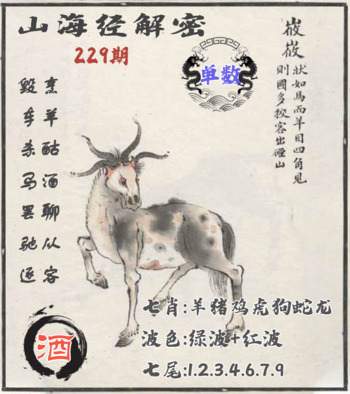 山海经解密
229期
单数
峳峳
状如馬而羊目四角見
則國多狡客出硜山
烹羊酤酒聊从容
毁车杀马罢驰逐
酒
七肖:羊猪鸡虎狗蛇龙
波色:绿波+红波
七尾:1.2.3.4.6.7.9